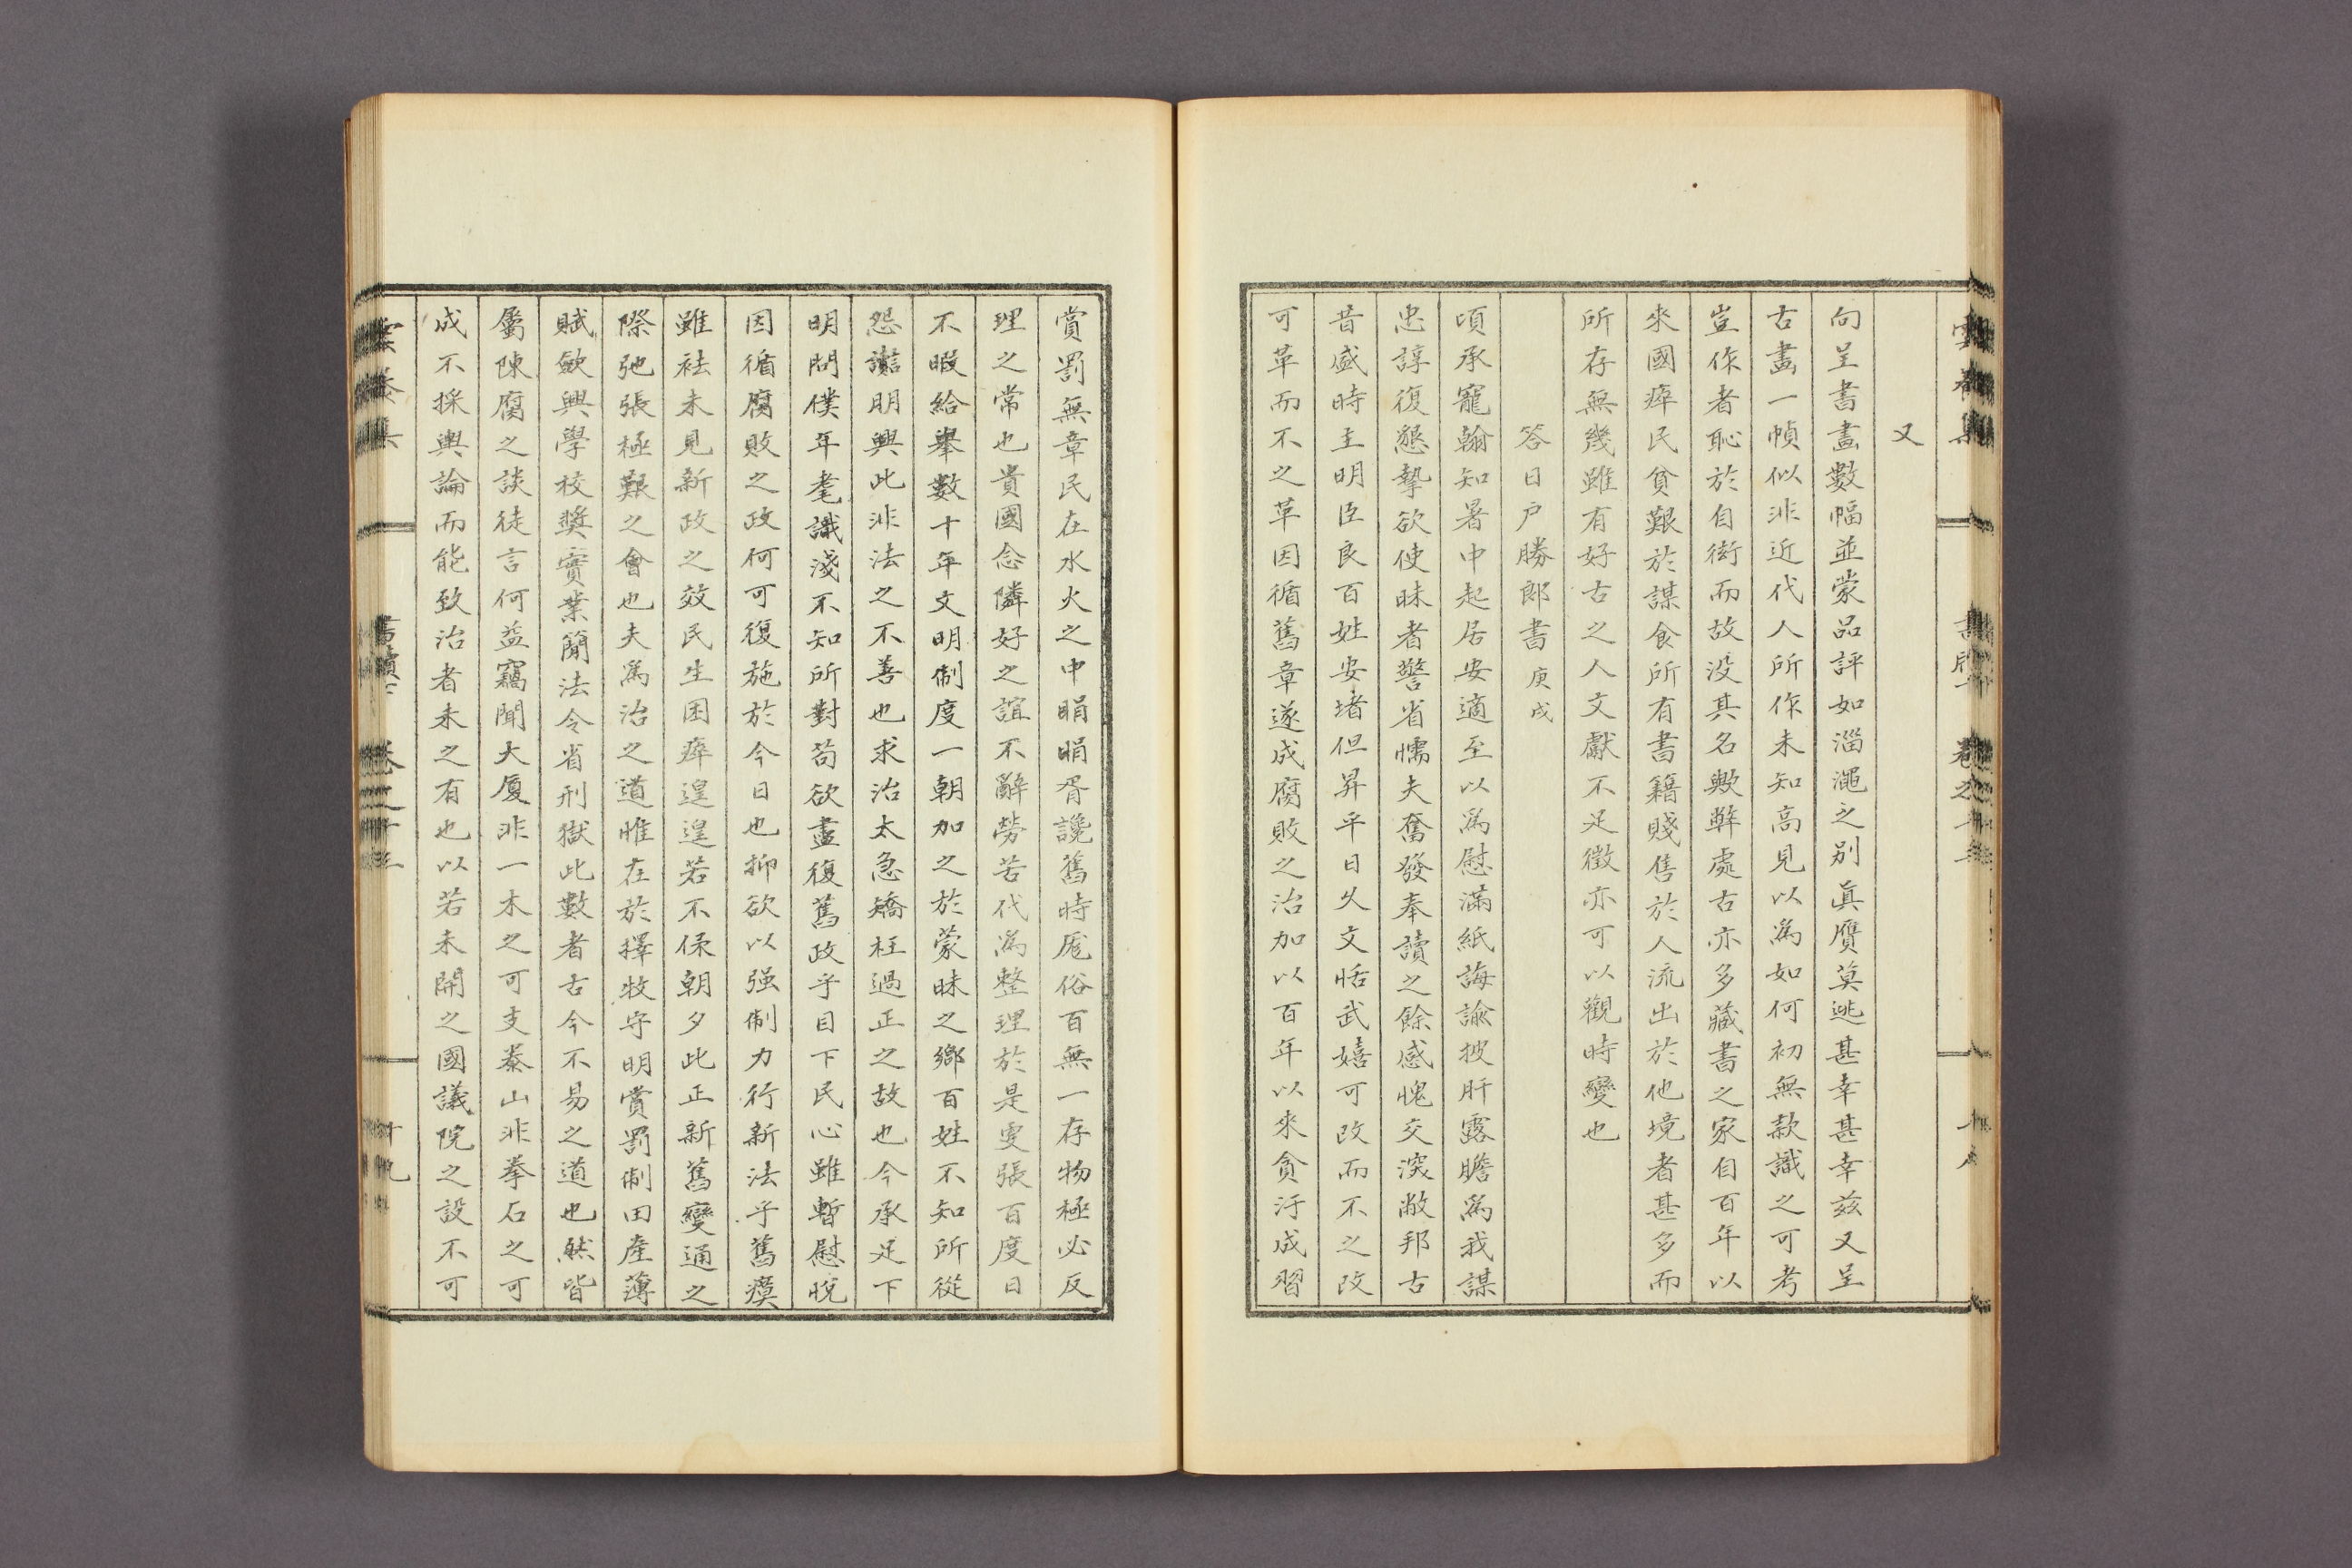 又
向呈書畫數幅並蒙品評如淄澠之别眞贋莫逃甚幸甚幸兹又呈
古畫一幀似非近代人所作未知高見以爲如何初無款識之可考
豈作者恥於自衒而故没其名歟鞾處古亦多藏書之家自百年以
來國瘁民貧艱於謀食所有書籍賤售於人流出於他境者甚多而
所存無幾雖有好古之人文獻不足徵亦可以觀時變也
答日戶勝郎書 庚戌
頃承寵翰知暑中起居安適至以爲慰滿紙誨諭披肝露膽爲我謀
忠諄復懇摯欲使昧者警省懦夫奮發奉讀之餘感愧交深敝邦古
昔盛時主明臣良百姓安堵但昇平日久文恬武嬉可改而不之改
可革而不之革因循舊章遂成腐敗之治加以百年以來貪汙成習
賞罰無章民在水火之中睊睊胥讒舊時厖俗百無一存物極必反
理之常也貴國念隣好之誼不辭勞苦代爲整理於是更張百度日
不暇給擧數十年文明制度一朝加之於蒙昧之鄉百姓不知所從
怨讟朋興此非法之不善也求治太急矯枉過正之故也今承足下
明問僕年耄識淺不知所對苟欲盡復舊政乎目下民心雖暫慰悅
因循腐敗之政何可復施於今日也抑欲以强制力行新法乎舊瘼
雖袪未見新政之效民生困瘁遑遑若不保朝夕此正新舊變通之
際弛張極艱之會也夫爲治之道惟在於擇牧守明賞罰制田產薄
賦斂興學校奬實業簡法令省刑獄此數者古今不易之道也然皆
屬陳腐之談徒言何益竊聞大廈非一木之可支泰山非拳石之可
成不採輿論而能致治者未之有也以若未開之國議院之設不可